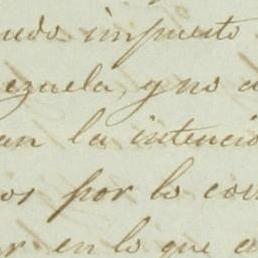 uedo impuesto
ezuela, y no a
an la intenció
os por lo con
ar en lo que a